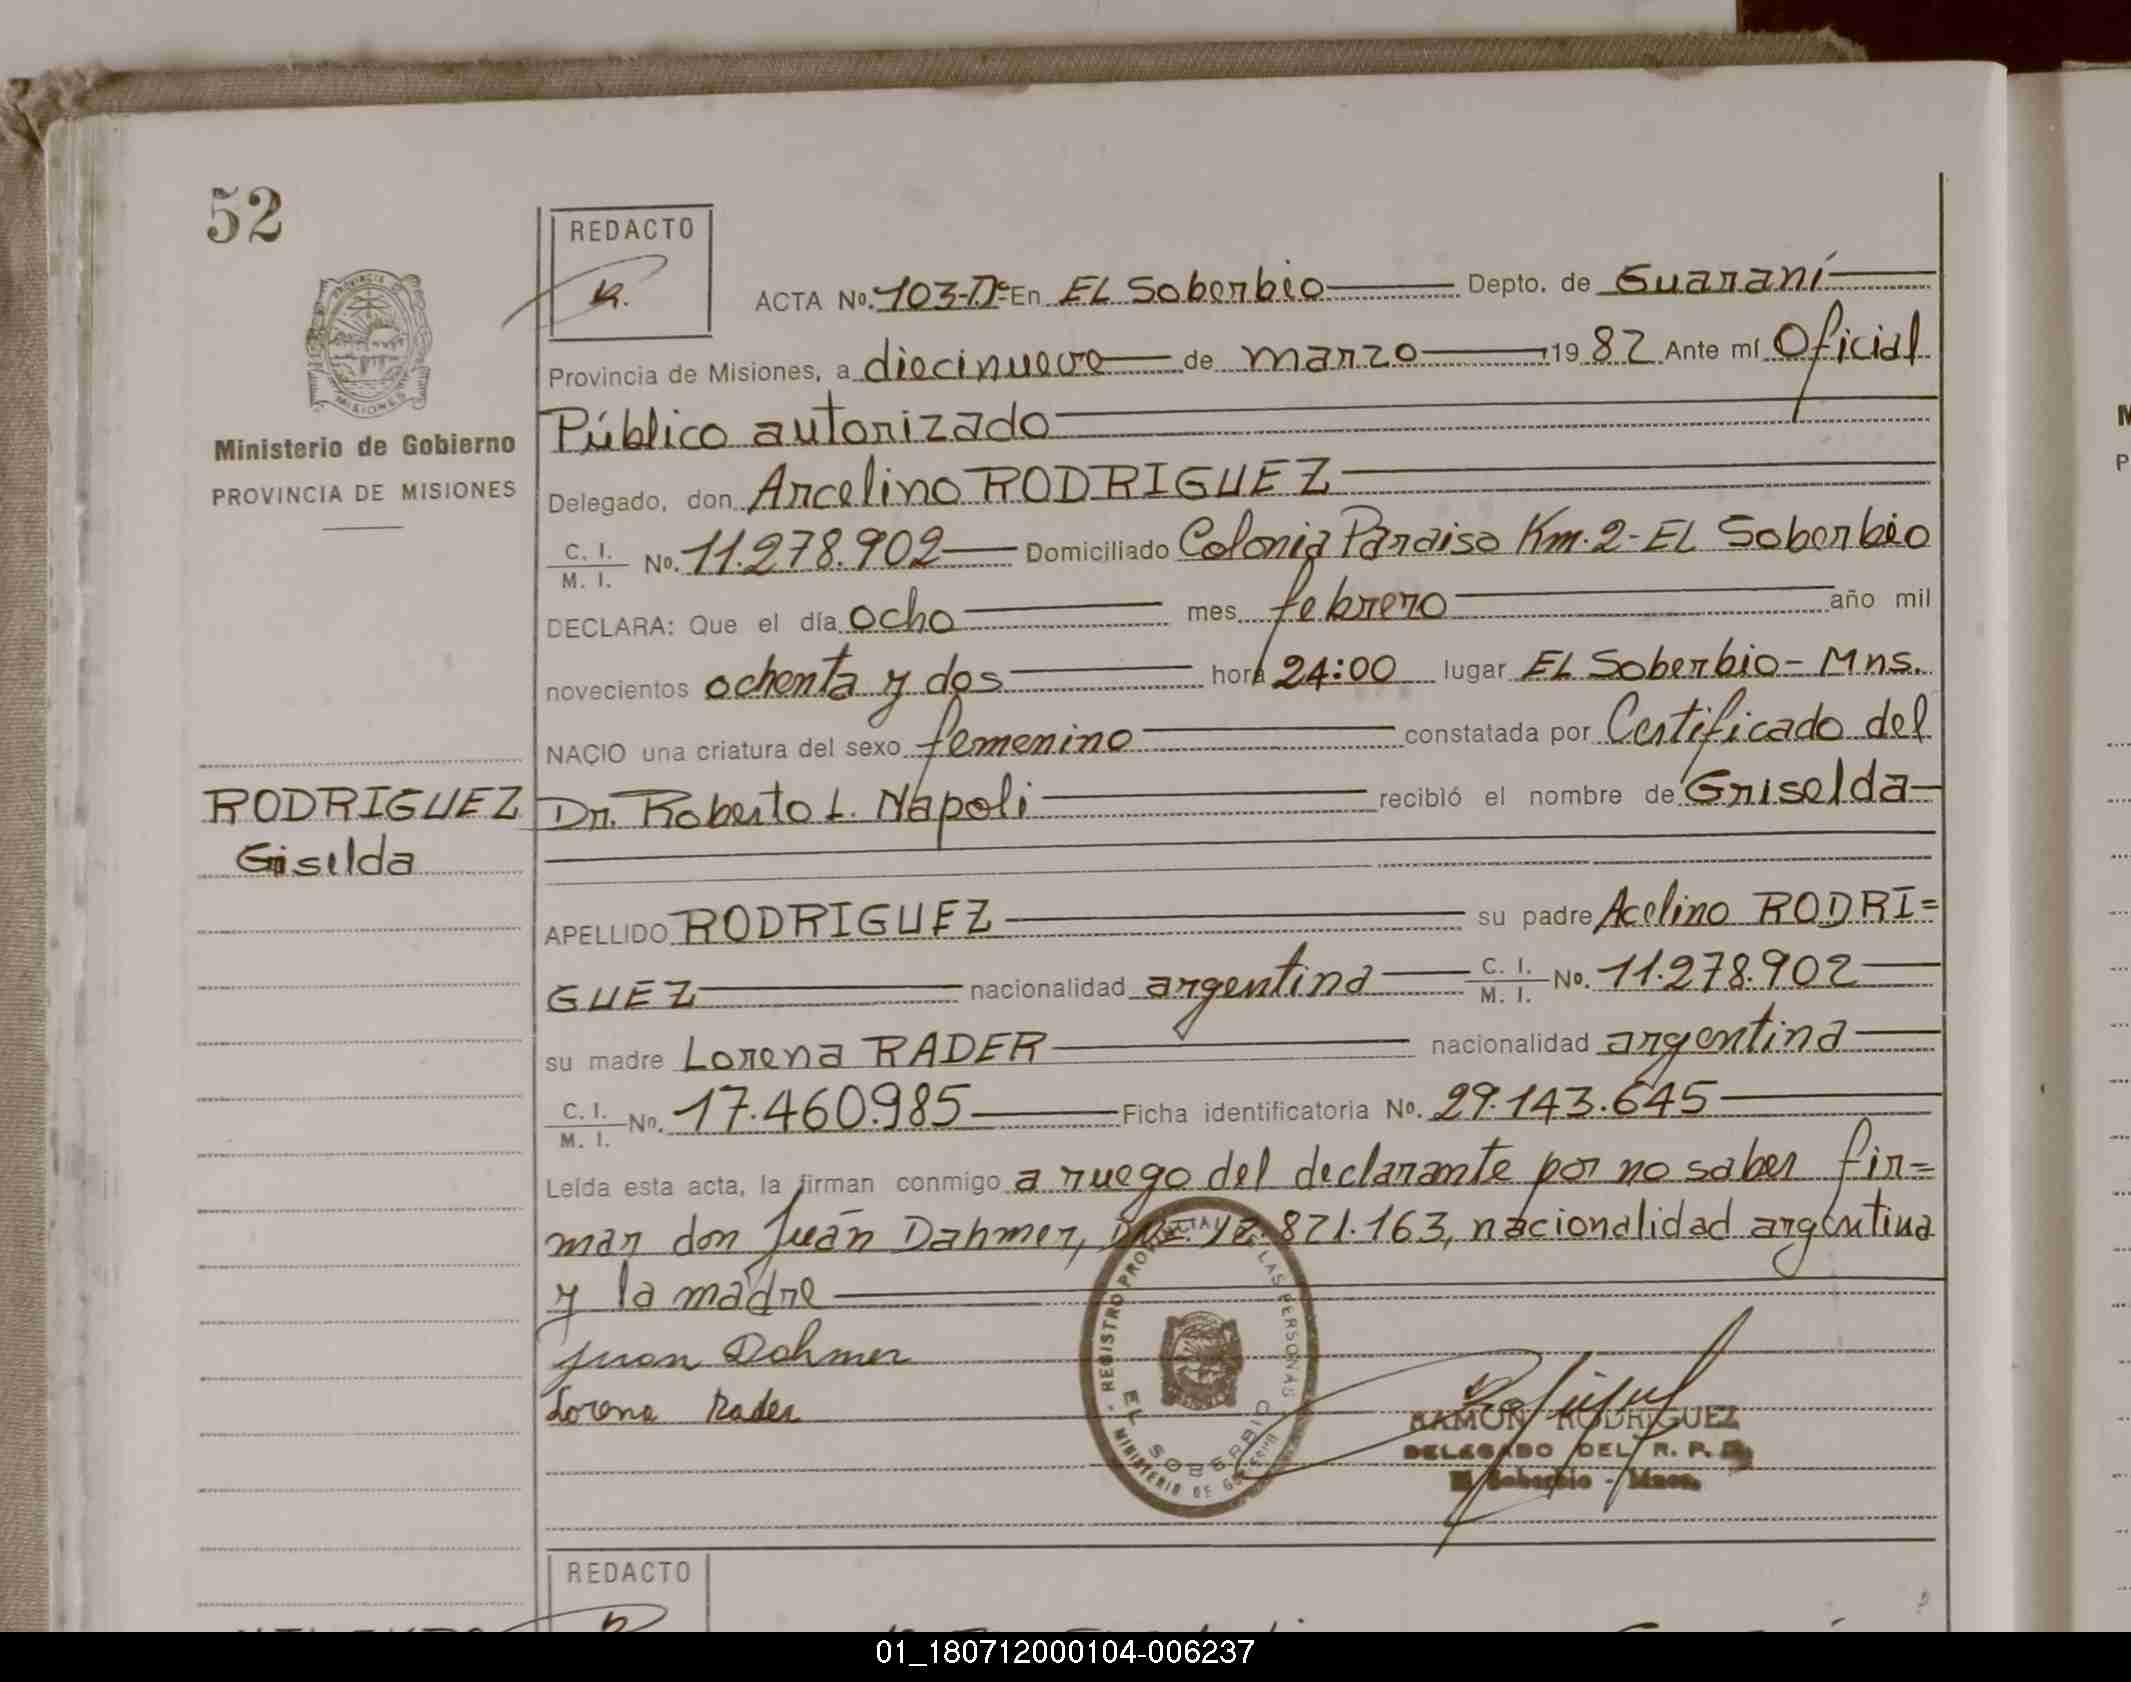 52
REDACTO
ACTA No. 103-Dº En EL Soberbio Depto. de Guaraní
Provincia de Misiones, a diecinueve de marzo 1982 Ante mí Oficial
Público autorizado
Ministerio de Gobierno
PROVINCIA DE MISIONES
Delegado, don Arcelino RODRIGUEZ
C. I. / M. I. No. 11.278.902 Domiciliado Colonia Paraiso Km. 2 - EL Soberbio
DECLARA: Que el día ocho mes febrero año mil
novecientos ochenta y dos hora 24:00 lugar EL Soberbio - Mns.
NACIO una criatura del sexo femenino constatada por Certificado del
RODRIGUEZ
Giselda
Dr. Roberto L. Napoli recibió el nombre de Griselda
APELLIDO RODRIGUEZ su padre Acelino RODRI=
GUEZ nacionalidad argentina C. I. / M. I. No. 11.278.902
su madre Lorena RADER nacionalidad argentina
C. I. / M. I. No. 17.460.985 Ficha identificatoria No. 29.143.645
Leída esta acta, la firman conmigo a ruego del declarante por no saber fir=
mar don Juan Dahmer, 821.163, nacionalidad argentina
y la madre
Juan Dahmer
Lorena Rader
REGISTRO PROVINCIAL DE LAS PERSONAS
EL SOBERBIO
MINISTERIO DE GOBIERNO
RAMON RODRIGUEZ
DELEGADO DEL R. P.
El Soberbio - Mnes.
REDACTO
01_180712000104-006237